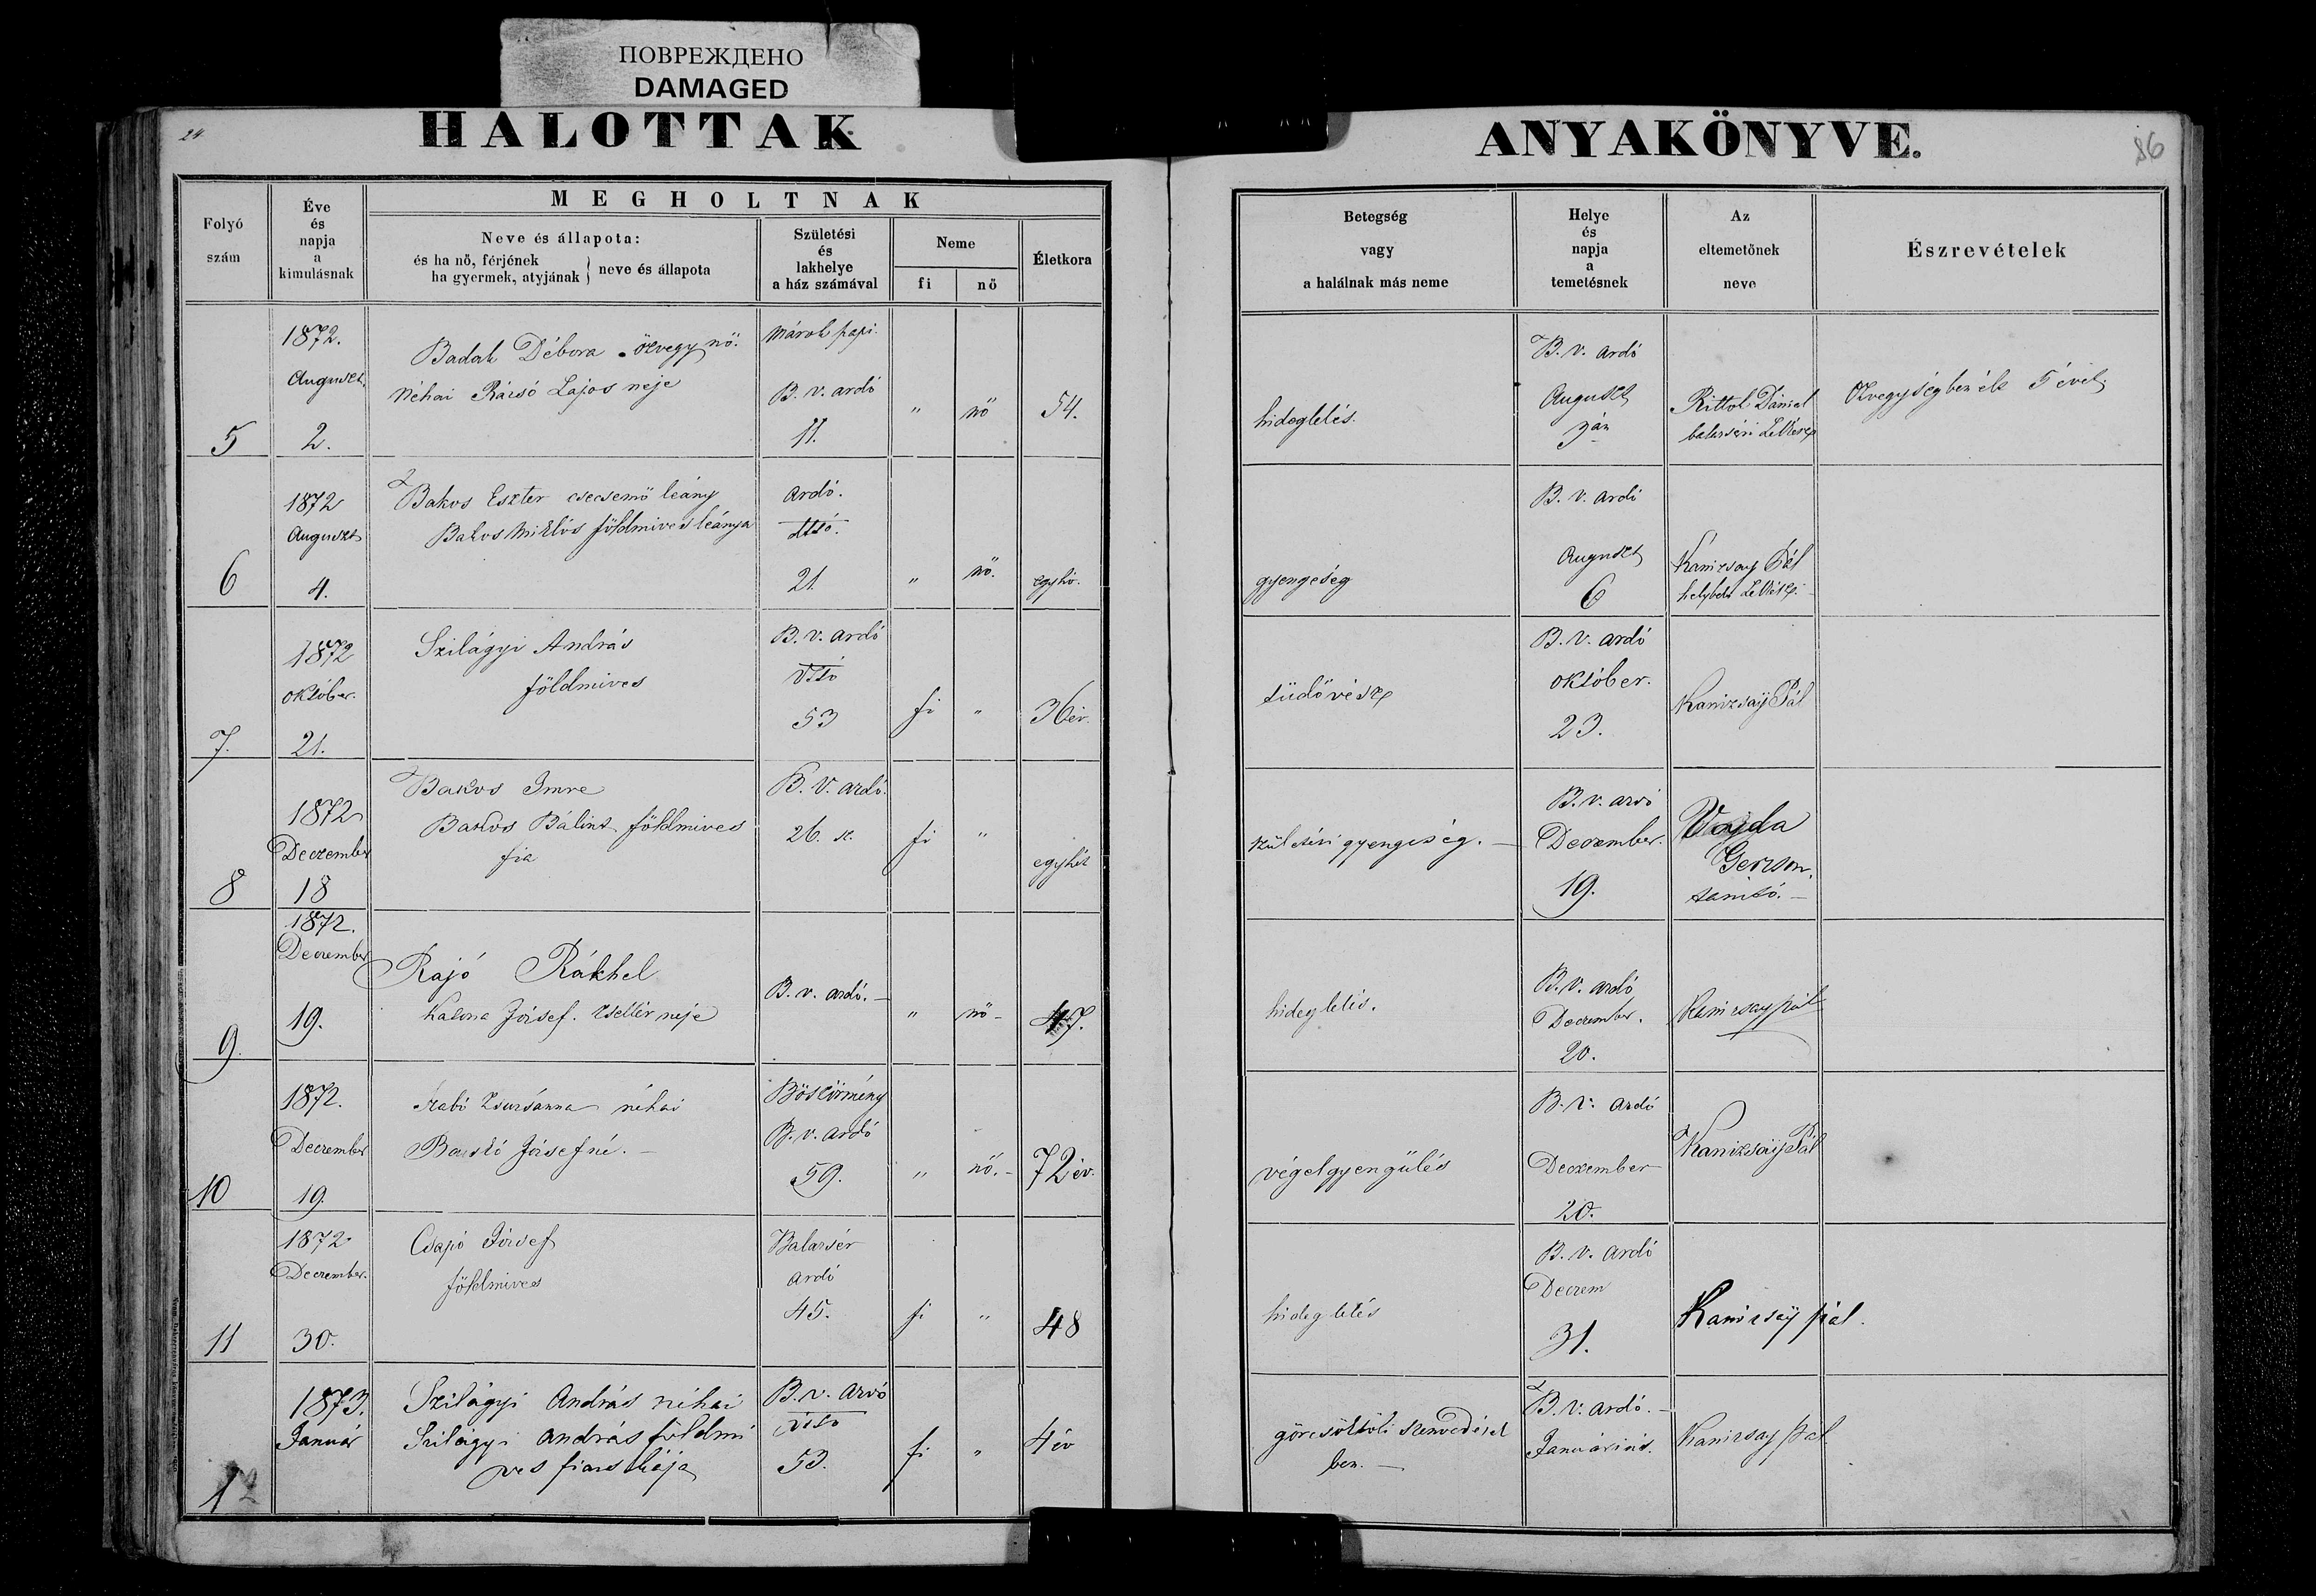 ПОВРЕЖДЕНО
DAMAGED
24
HALOTTAK
ANYAKÖNYVE.
86
Folyó
szám
Éve
és
napja
a
kimulásnak
MEGHOLTNAK
Neve és állapota:
és ha nő, férjének
ha gyermek, atyjának } neve és állapota
Születési
és
lakhelye
a ház számával
Neme
fi
nő
Életkora
Betegség
vagy
a halálnak más neme
Helye
és
napja
a
temetésnek
Az
eltemetőnek
neve
Észrevételek
5
1872.
August.
2.
Badak Débora özvegy nő.
néhai Rácsó Lajos neje
Márok papi.
B. v. ardó
11.
"
nő
54.
hideglelés.
B. v. ardó
August
3án
Rittok Dániel
balazséri Lelkész
Özvegységben élt 5 évet.
6
1872
August
4.
Bakos Eszter csecsemő leány
Bakos Miklós földmives leánya
ardó.
ditó.
21.
"
nő.
egy hó.
gyengeség
B. v. ardó
August
6
Kanizsay Pál
helybeli Lelkész.
7.
1872
október.
21.
Szilágyi András
földmives
B. v. ardó
ditó
53
fi
"
36 év.
tüdővész
B. v. ardó
október.
23.
Kanizsaÿ Pál
8
1872
Deczember
18
Bakos Imre
Bakos Bálint földmives
fia
B. V. ardó.
26. sz.
fi
"
egy hét
születési gyengeség. —
B. v. ardó
Deczember.
19.
Vajda
Gerzson,
tanitó. —
9.
1872.
Deczember
19.
Rajó Rákhel
Katona József. zsellér neje
B. v. ardó. —
"
nő –
47.
hideglelés.
B. v. ardó
Deczember.
20.
Kanizsay pál
10
1872.
Deczember
19.
Szabó Zsuzsánna néhai
József né. —
Böszörmény
B. v. ardó
59.
"
nő. –
72 év.
végelgyengülés
B. v. ardó
Deczember
20.
Kanizsaÿ Pál
11
1872.
Deczember.
30.
Csapó József
földmives
Balazsér
ardó
45.
fi
"
48
hideglelés
B. v. ardó
Deczem
31.
Kanizsaÿ pál.
12
1873.
Január
Szilágyi András néhai
Szilágyi András földmi
ves fiacskája
B. v. ardó
ditó
53.
fi
"
4 év
görcsöktöli szenvedések
ben. —
B. v. ardó. —
Januárius.
Kanizsay pál